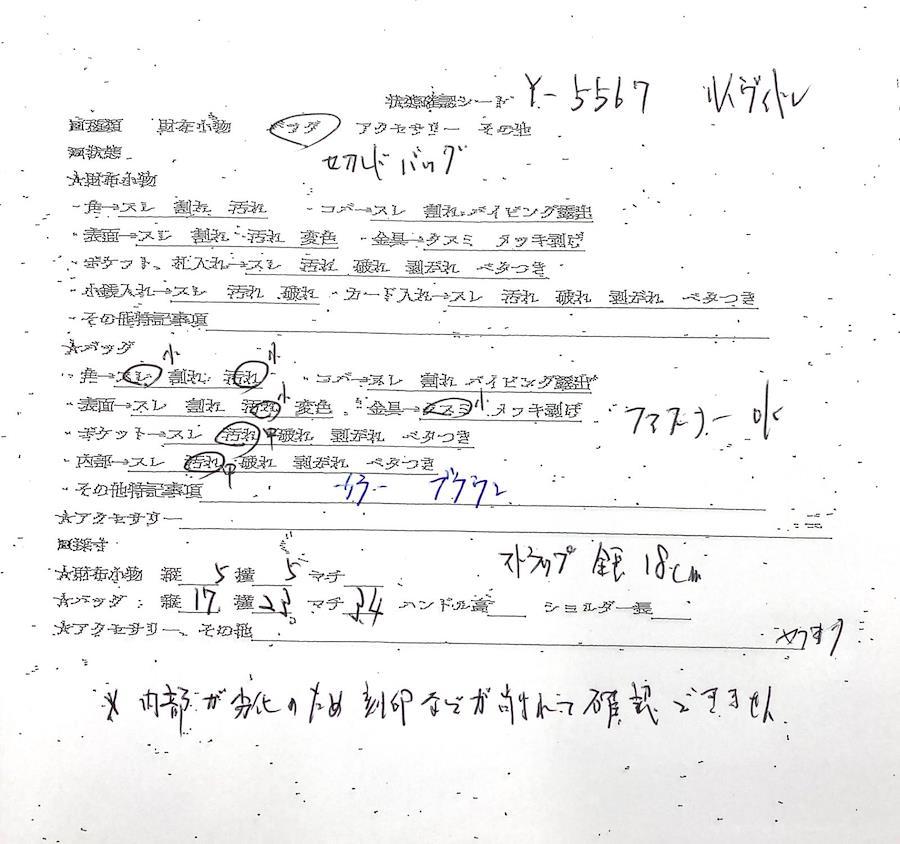 状態確認シート Y-5567 ルイヴィトン
■種類 財布小物 バッグ アクセサリー その他
■状態 セカンドバッグ
★財布小物
・角→スレ 割れ 汚れ ・コバ→スレ 割れ パイピング露出
・表面→スレ 割れ 汚れ 変色 ・金具→クスミ メッキ剥げ
・ポケット、札入れ→スレ 汚れ 破れ 剥がれ ベタつき
・小銭入れ→スレ 汚れ 破れ ・カード入れ→スレ 汚れ 破れ 剥がれ ベタつき
・その他特記事項
★バッグ
・角→スレ小 割れ 汚れ小 ・コバ→スレ 割れ パイピング露出
・表面→スレ 割れ 汚れ小 変色 ・金具→クスミ小 メッキ剥げ ファスナー 小
・ポケット→スレ 汚れ中 破れ 剥がれ ベタつき
・内部→スレ 汚れ中 破れ 剥がれ ベタつき
・その他特記事項 カラー ブラウン
★アクセサリー
■採寸
★財布小物 縦 5 横 5 マチ ストラップ 全長 18cm
★バッグ: 縦 17 横 23 マチ ハンドル高 ショルダー長
★アクセサリー、その他 ヤフオク
※内部が劣化のため刻印などが剥れて確認できません